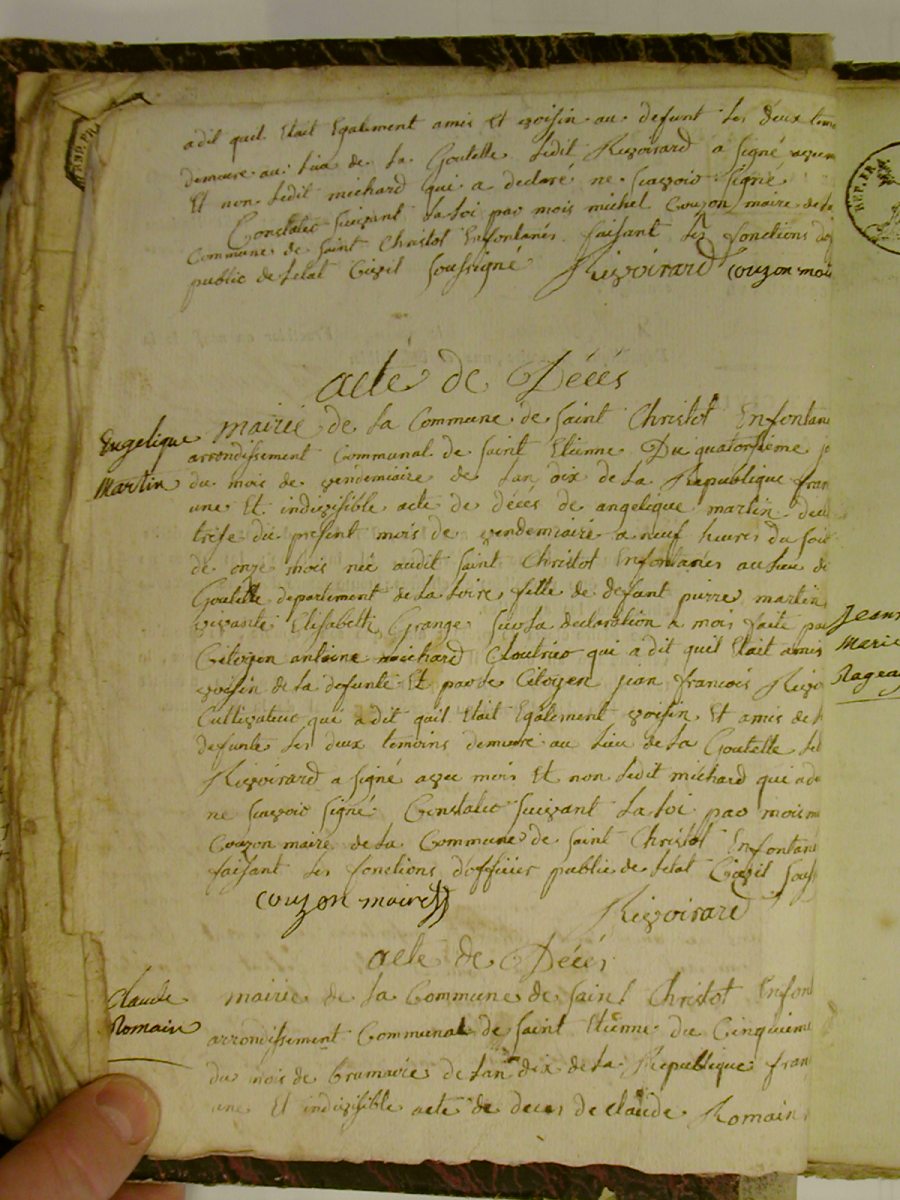 adit quil Etait Egalement amis Et voisin au defunt Les deux temo
demeure au Lieu de La Goutelle Ledit Rivoirard a signé avec
Et non Ledit michard qui a declaré ne scavoir signe
Constater suivant La Loi par mois michel Couzon maire de La
Commune de saint Christot Enfontanés faisant Les fonctions
public de Letat Civil soussigne Rivoirard couzon mair
acte de Décés
Engelique
Martin
mairie de La Commune de saint Christot Enfontan
arrondissement Communal de saint Etienne Du quatorsieme jo
du mois de vendemiaire de Lan dix de La Republique fran
une Et indivisible acte de déces de angelique martin
trese du présent mois de vendemiaire a neuf heures du soir
de onze mois née audit saint Christot Enfontanés au Lieu de
Goutelle departement de La Loire fille de defunt pierre martin
vivante Elisabeth Grange sur La declaration a mois faite par
Citoyen antoine michard Cloutrier qui a dit quil Etait amis
voisin de La defunte Et par Le Citoyen jean francois Rivo
Cultivateur qui a dit quil Etait Egalement voisin Et amis de L
defunte Les deux temoins demeure au Lieu de La Goutelle Led
Rivoirard a signé avec mois Et non Ledit michard qui a de
ne scavoir signé Constater suivant La Loi par mois m
Couzon maire de La Commune de saint Christot Enfontan
faisant Les fonctions d'officier public de Letat Civil Sous
couzon maire Rivoirard
Jeann
Marie
Ragea
acte de Décés
Claude
Romain
mairie de La Commune de saint Christot Enfon
arrondissement Communal de saint Etienne du Cinquieme
du mois de brumaire de Lan dix de La Republique fran
une Et indivisible acte de deces de Claude Romain